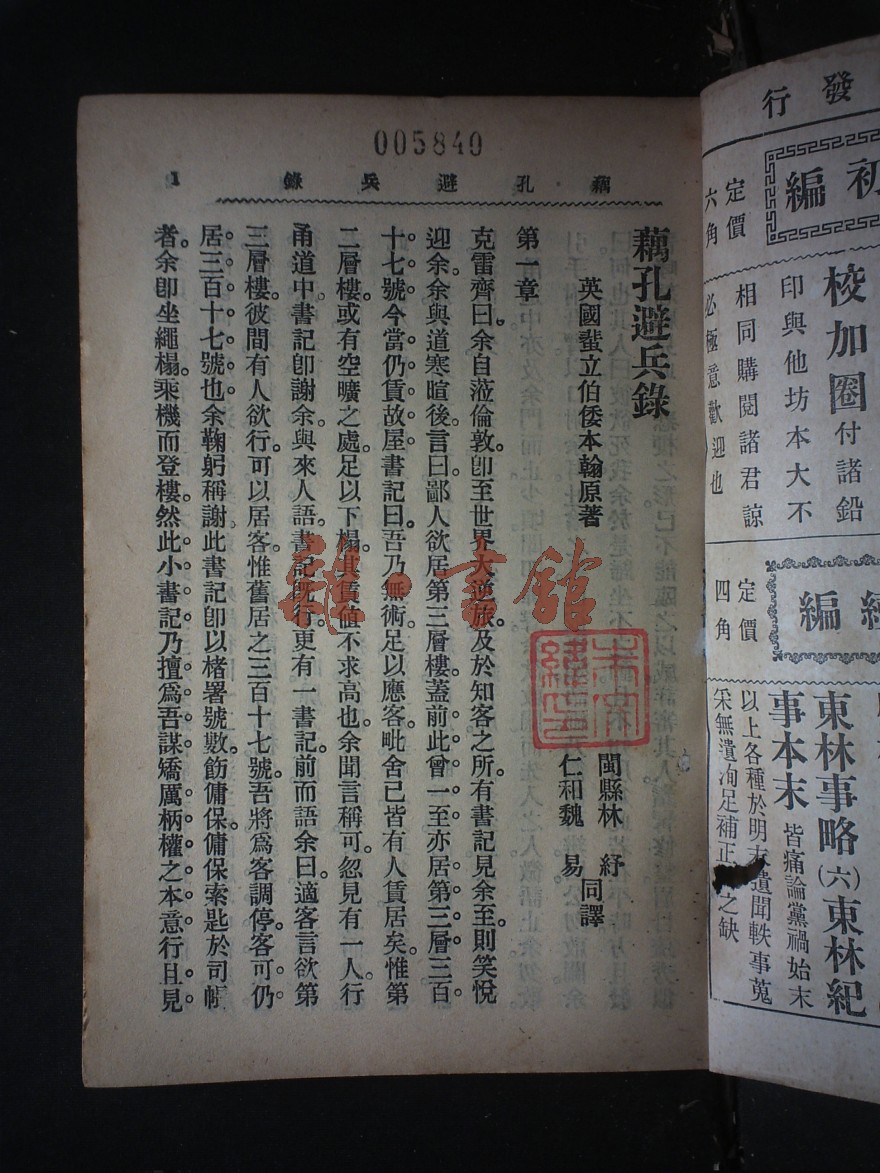 005840
藕孔避兵錄
1
藕孔避兵錄
英國蜚立伯倭本翰原著
閩縣林 紓
仁和魏 易
同譯
第一章
克雷齊曰。余自蒞倫敦。卽至世界大逆旅。及於知客之所。有書記見余至。則笑悅
迎余。余與道寒暄後。言曰。鄙人欲居第三層樓。蓋前此曾一至。亦居第三層三百
十七號。今當仍賃故屋。書記曰。吾乃無術足以應客。毗舍已皆有人賃居矣。惟第
二層樓。或有空曠之處。足以下榻。其賃値不求高也。余聞言稱可。忽見有一人行
甬道中。書記卽謝余。與來人語。書記旣行。更有一書記前而語余曰。適客言欲第
三層樓。彼間有人欲行。可以居客。惟舊居之三百十七號。吾將爲客調停。客可仍
居三百十七號也。余鞠躬稱謝。此書記卽以楮署號數。飭傭保。傭保索匙於司帳
者。余卽坐繩榻。乘機而登樓。然此小書記乃擅爲吾謀。矯厲柄權之本意行。且見
雜·書館
發行
初編
定價
六角
校加圈付諸鉛
印與他坊本大不
相同購閱諸君諒
必極意歡迎也
編
定價
四角
東林事略(六)東林紀
事本末 皆痛論黨禍始末
以上各種於明末遺聞軼事蒐
采無遺洵足補正之缺